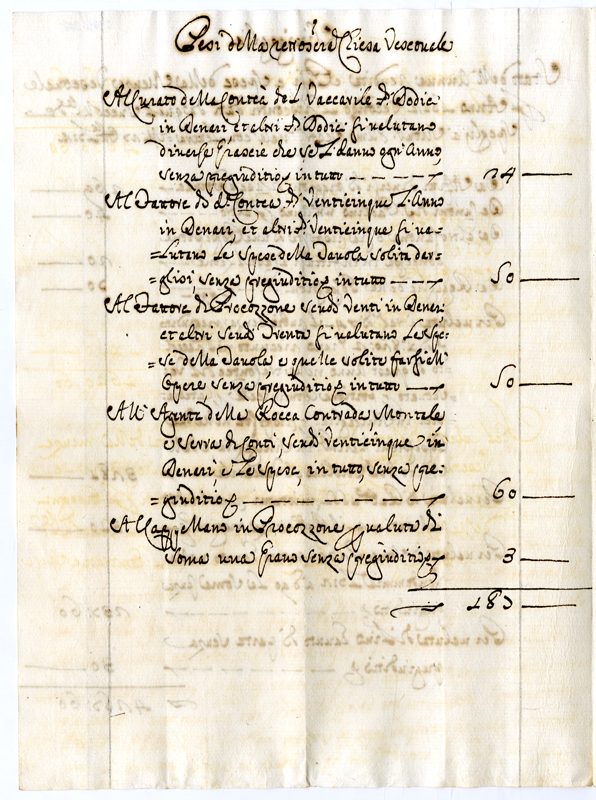 Pesi della retroscrè Chiesa Vescovale
Al Curato della Contea del Vaccarile Dodici
in Denari et altri Dodici si valutano
diverse Grascie che se L. danno ogni Anno,
senza pregiuditio in tutto — 24 —
Al Fattore di dª Contea Venticinque L'Anno
in Denari, et altri Venticinque si va=
=lutano Le spese della Tavola solita dar=
=glisi senza pregiuditio in tutto — 50 —
Al Fattore di Procozzone scudi venti in Denari
et altri scudi Trenta si valutano Le spe=
=se della Tavola e quelle solite farsi all'
Opere senza pregiuditio in tutto — 50 —
All' Agente della Rocca Contrada, Montale
e Serra di Conti, scudi venticinque in
Denari, e Le spese, in tutto, senza pre=
=giuditio — 60 —
Al Mano in Procozzone valuta di
Soma una Grano senza pregiuditio — 3 —
— 183 —